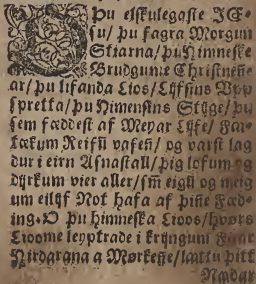 O Þu elſkulegaſte JE-
ſu/ þu fagra Morgun
Stiarna/ þu Himneſke
Brudgume Chriſtneñ-
ar/ þu lifanda Lios/ Lijfſins Vpp
ſpretta/ þu Himenſins Stijge/ þu
ſem fæddeſt af Meyar Lijfe/ Fa-
tækum Reifū vafeñ/ og varſt lag
dur i eirn Aſnaſtall/ þig lofum og
dyrkum vier aller/ ſm̄ eigū og meig
um eilijf Not hafa af þiñe Fæd-
ing. O þu himneſka Lioos/ hvørs
Lioome leyptrade i kryngum Fiaar
Hirdarana a Mørkeñe/ lættu þitt
Nædar